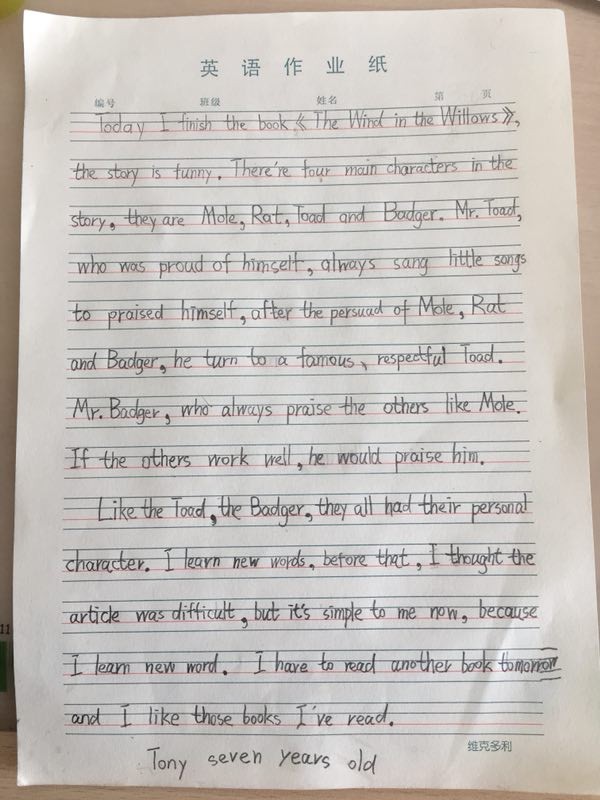 英语作业纸
编号 班级 姓名 第 页
Today I finish the book《The Wind in the Willows》,
the story is funny. There're four main characters in the
story, they are Mole, Rat, Toad and Badger. Mr. Toad,
who was proud of himself, always sang little songs
to praised himself, after the persuad of Mole, Rat
and Badger, he turn to a famous, respectful Toad.
Mr. Badger, who always praise the others like Mole.
If the others work well, he would praise him.
Like the Toad, the Badger, they all had their personal
character. I learn new words, before that, I thought the
article was difficult, but it's simple to me now, because
I learn new word. I have to read another book tomorrow
and I like those books I've read.
维克多利
Tony seven years old
11